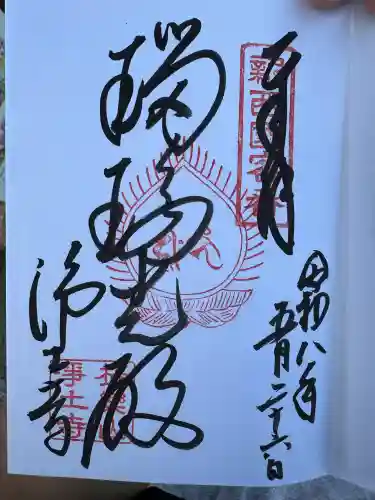 奉拝
新西国客番
令和八年
五月二十六日
瑠璃光殿
浄土寺